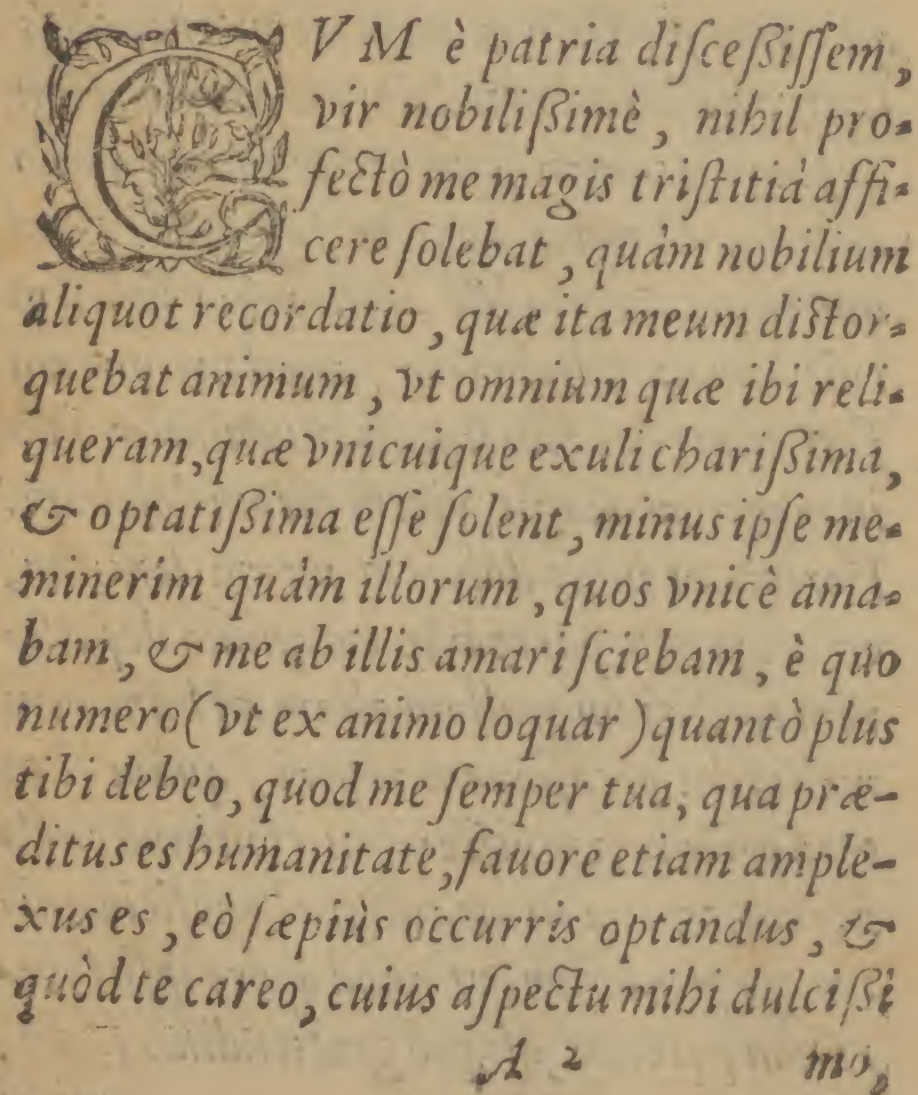 CVM è patria diſceſſiſſem,
vir nobiliſſimè, nihil pro-
fectò me magis triſtitiâ affi-
cere ſolebat, quàm nobilium
aliquot recordatio, quæ ita meum diſtor-
quebat animum, vt omnium quæ ibi reli-
queram, quæ vnicuique exuli chariſſima,
& optatiſſima eſſe ſolent, minus ipſe me-
minerim quàm illorum, quos vnicè ama-
bam, & me ab illis amari ſciebam, è quo
numero (vt ex animo loquar) quantò plus
tibi debeo, quod me ſemper tua, qua præ-
ditus es humanitate, fauore etiam ample-
xus es, eò ſæpiùs occurris optandus, &
quòd te careo, cuius aſpectu mihi dulciſſi
A 2 mo,